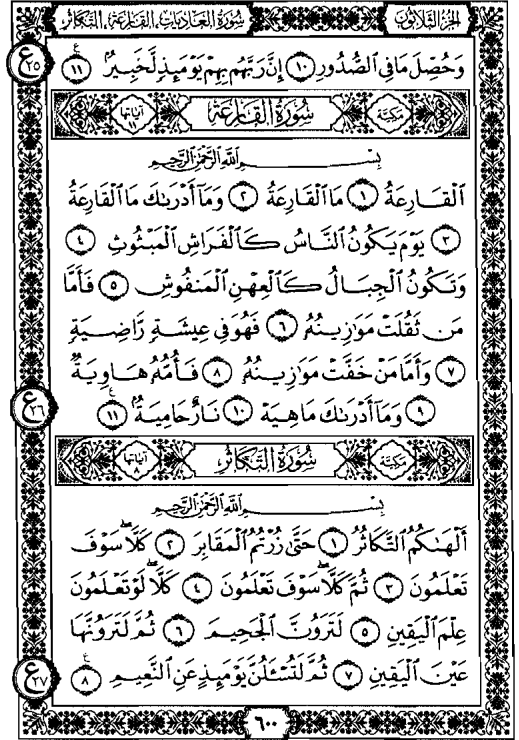 الجزء الثلاثون
سورة العاديات، القارعة، التكاثر
وَحُصِّلَ مَا فِي ٱلصُّدُورِ ١٠ إِنَّ رَبَّهُم بِهِمْ يَوْمَئِذٍ لَّخَبِيرٌۢ ١١
ع ٢٥
مكية سُورَةُ القَارِعَة آياتها ١١
بِسْمِ ٱللَّهِ ٱلرَّحْمَٰنِ ٱلرَّحِيمِ
ٱلْقَارِعَةُ ١ مَا ٱلْقَارِعَةُ ٢ وَمَآ أَدْرَىٰكَ مَا ٱلْقَارِعَةُ
٣ يَوْمَ يَكُونُ ٱلنَّاسُ كَٱلْفَرَاشِ ٱلْمَبْثُوثِ ٤
وَتَكُونُ ٱلْجِبَالُ كَٱلْعِهْنِ ٱلْمَنفُوشِ ٥ فَأَمَّا
مَن ثَقُلَتْ مَوَٰزِينُهُۥ ٦ فَهُوَ فِي عِيشَةٍ رَّاضِيَةٍ
٧ وَأَمَّا مَنْ خَفَّتْ مَوَٰزِينُهُۥ ٨ فَأُمُّهُۥ هَاوِيَةٌ
٩ وَمَآ أَدْرَىٰكَ مَا هِيَهْ ١٠ نَارٌ حَامِيَةٌۢ ١١
ع ٢٦
مكية سُورَةُ التَّكَاثُر آياتها ٨
بِسْمِ ٱللَّهِ ٱلرَّحْمَٰنِ ٱلرَّحِيمِ
أَلْهَىٰكُمُ ٱلتَّكَاثُرُ ١ حَتَّىٰ زُرْتُمُ ٱلْمَقَابِرَ ٢ كَلَّا سَوْفَ
تَعْلَمُونَ ٣ ثُمَّ كَلَّا سَوْفَ تَعْلَمُونَ ٤ كَلَّا لَوْ تَعْلَمُونَ
عِلْمَ ٱلْيَقِينِ ٥ لَتَرَوُنَّ ٱلْجَحِيمَ ٦ ثُمَّ لَتَرَوُنَّهَا
عَيْنَ ٱلْيَقِينِ ٧ ثُمَّ لَتُسْـَٔلُنَّ يَوْمَئِذٍ عَنِ ٱلنَّعِيمِ ٨
ع ٢٧
٦٠٠